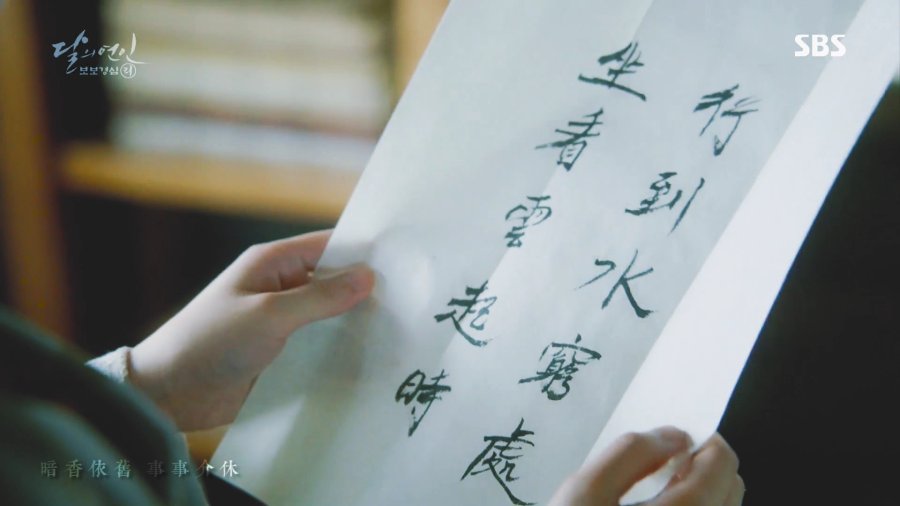 달의 연인
보보경심 려
SBS
行到水窮處
坐看雲起時
暗香依舊 事事介休